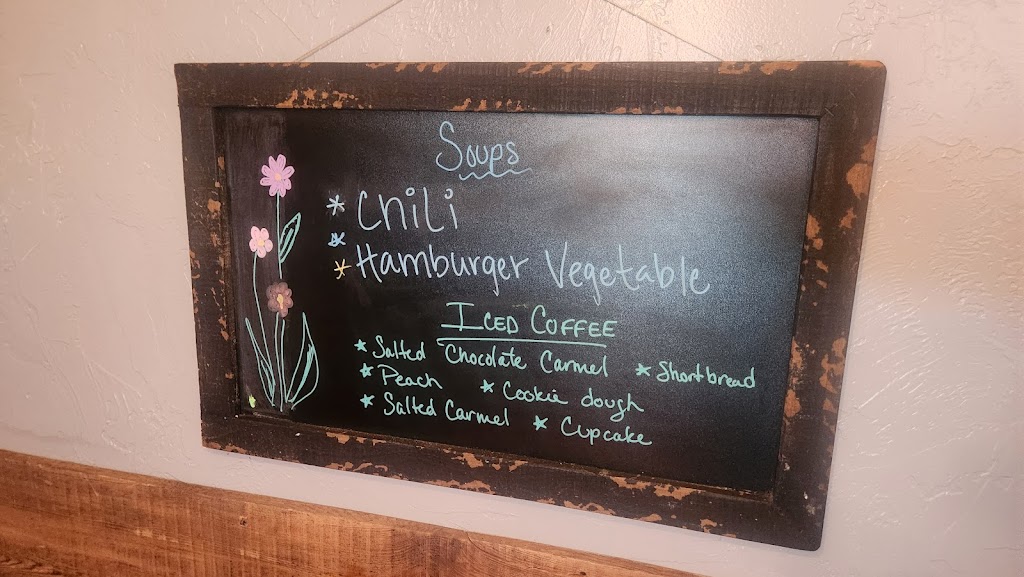 Soups
* Chili
*
* Hamburger Vegetable
Iced Coffee
* Salted Chocolate Carmel * Shortbread
* Peach * Cookie dough
* Salted Carmel * Cupcake